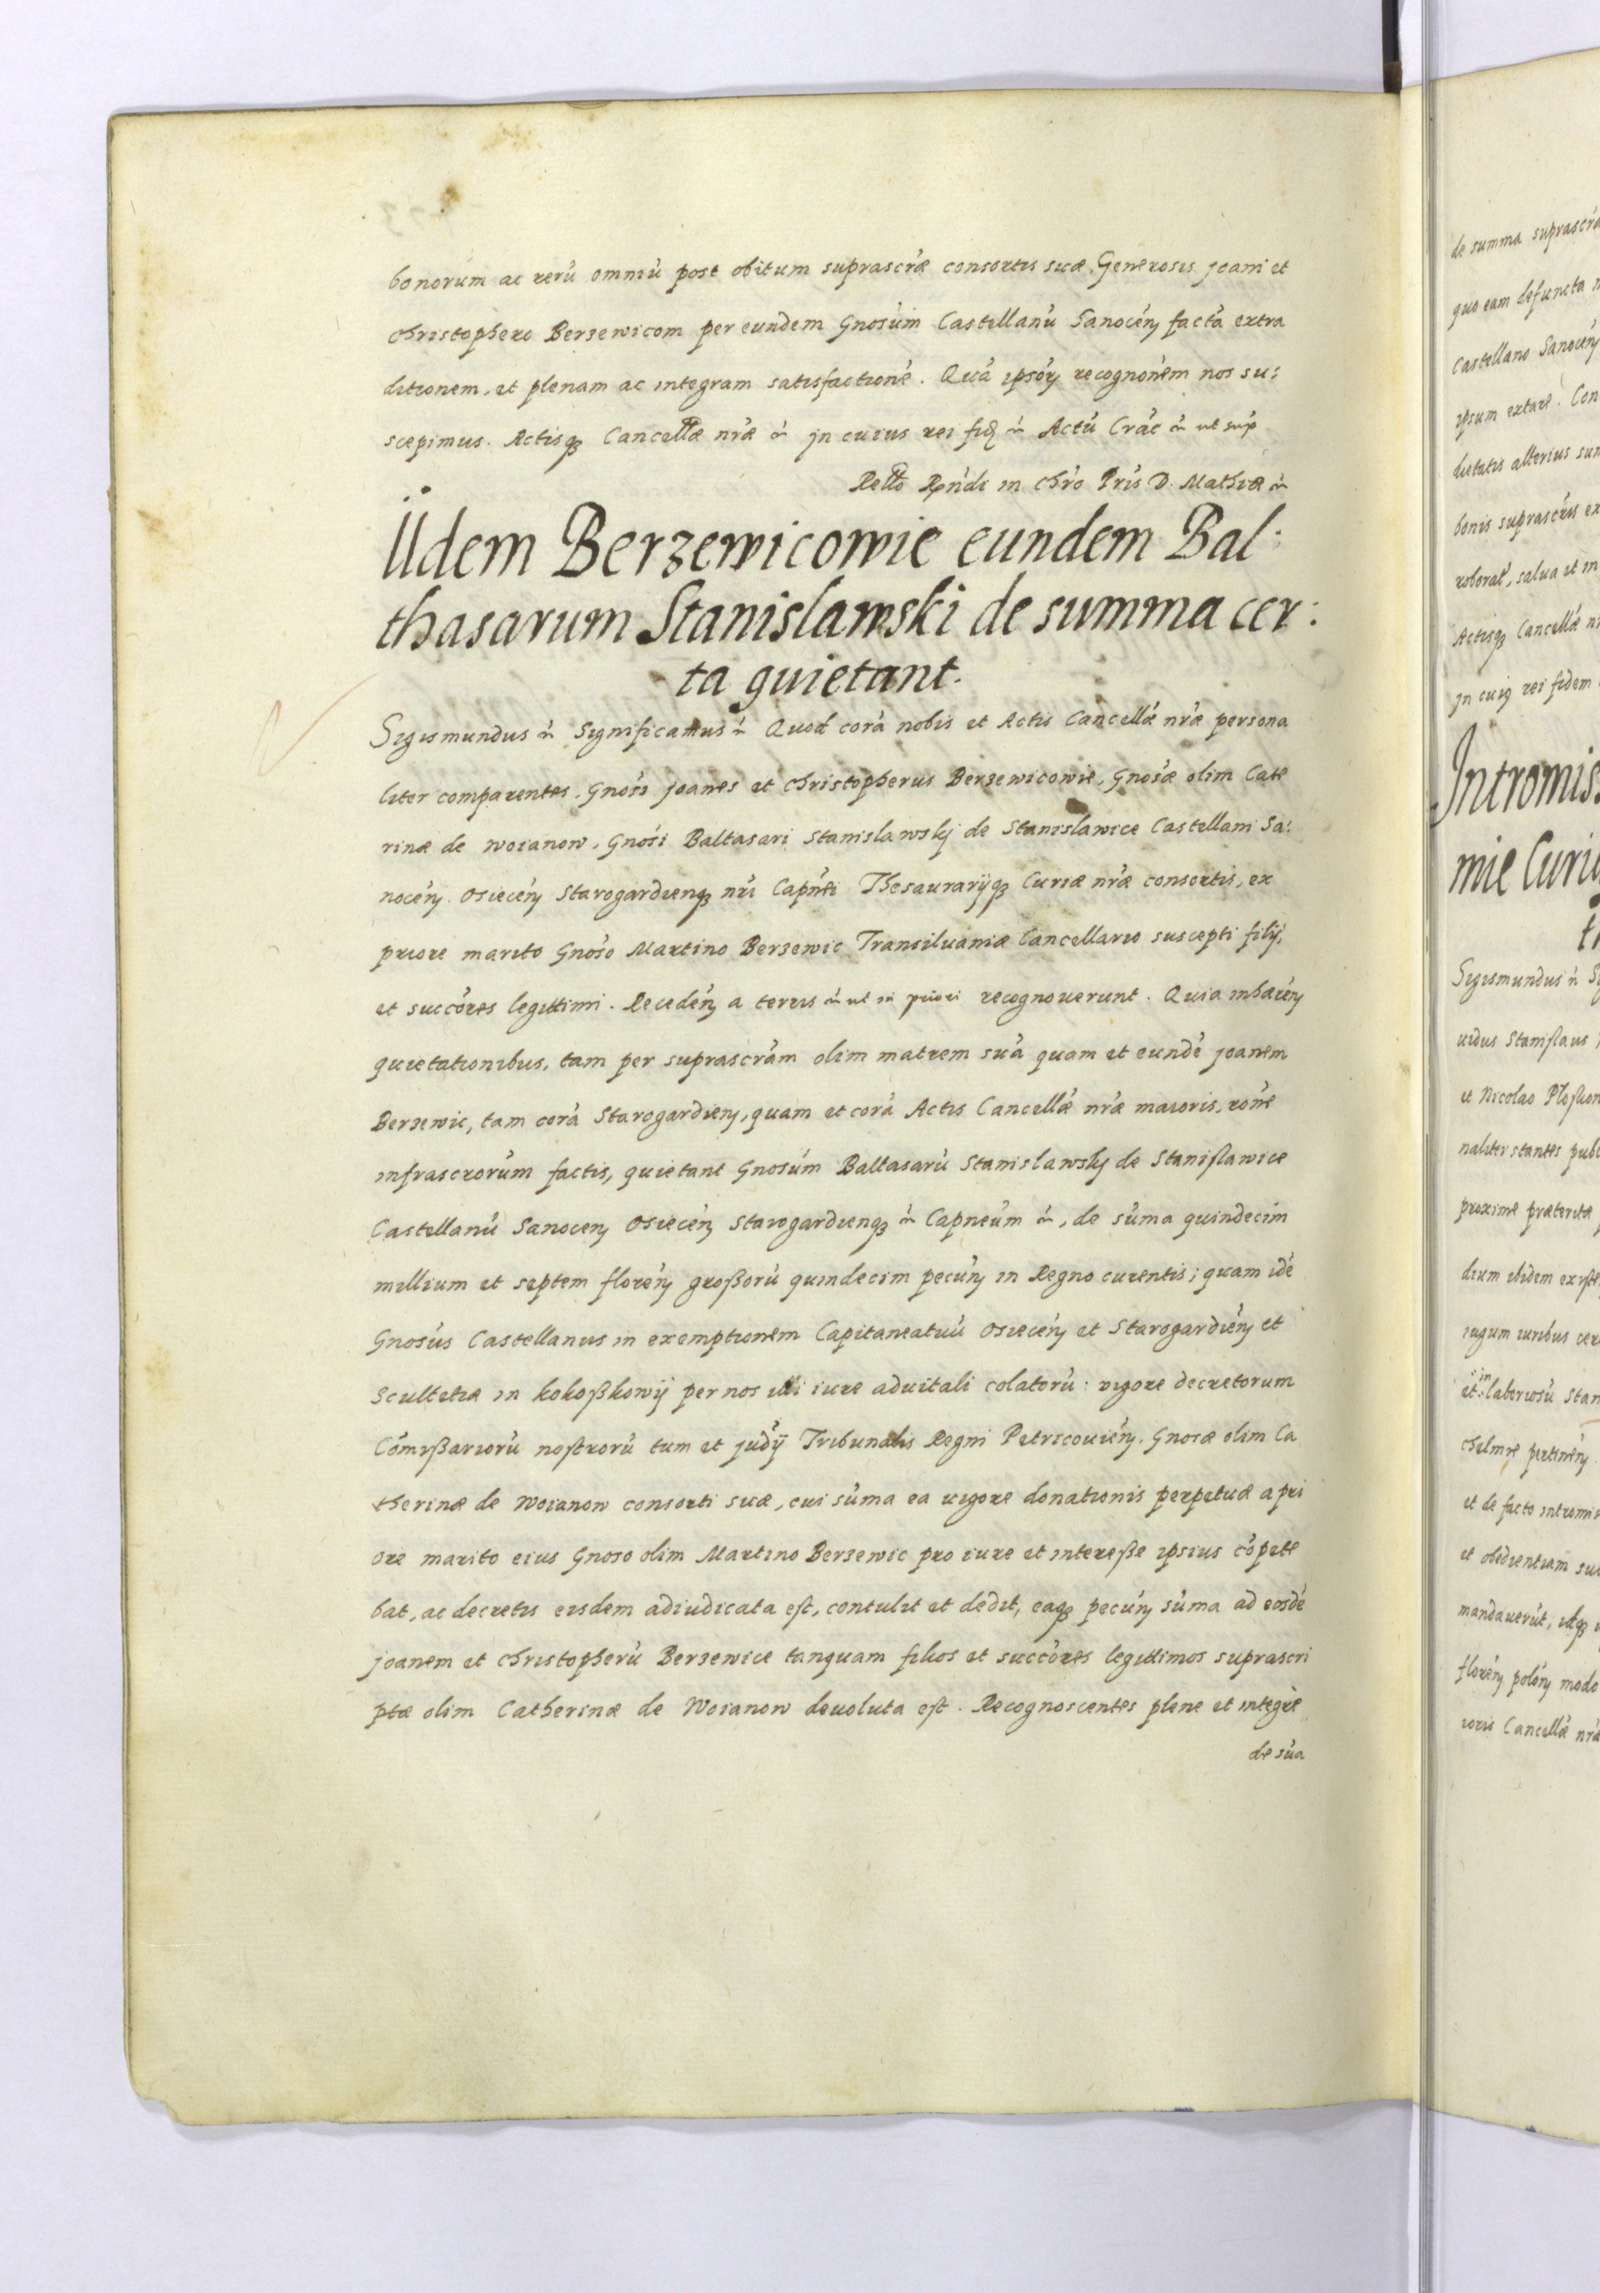 bonorum ac rerū omniū post obitum suprascræ consortis suæ Generosis Joani et
Christophero Berzewicom per eundem Gnosum Castellanū Sanoceñ factā extra
ditionem, et plenam ac integram satisfactionē. Quā ipsoŕ recognonem nos su:
scepimus. Actisq Cancellæ nræ  Jn cuius rei fid  Actū Crac ut sup
Rello Rndi in Chro Pris D. Mathiæ
Iidem Berzewicowie eundem Bal:
thasarum Stanislawski de summa cer:
ta quietant.
Sigismundus  Significamus  Quod corā nobis et Actis Cancellæ nræ persona
liter comparentes, Gnosi Joanes et Christopherus Berzewicowie, Gnosæ olim Cate
rinæ de Woianow, Gnosi Baltasari Stanislawskj de Stanislawice Castellani Sa:
noceñ Osieceñ Starogardienq nri Capnei Thesaurarijq Curiæ nræ consortis, ex
priore marito Gnoso Martino Berzewic Transiluaniæ Cancellario suscepti filij,
et succores legittimi. Recedeñ a terris ut in priori recognouerunt. Quia inhæreñ
quietationibus, tam per suprascram olim matrem suā quam et eundē Joanem
Berzewic, tam corā Starogardieñ, quam et corā Actis Cancellæ nræ maioris, rone
infrascrorum factis, quietant Gnosum Baltasarū Stanislawskj de Stanislawice
Castellanū Sanoceñ Osieceñ Starogardienq  Capneum , de sūma quindecim
millium et septem floreñ großorū quindecim pecuñ in Regno curentis; quam idē
Gnosus Castellanus in exemptionem Capitaneatuū Osieceñ et Starogardieñ et
Scultetiæ in kokoßkowij per nos illi iure aduitali colatorū: vigore decretorum
Comißariorū nostrorū tum et judij Tribunalis Regni Petricouieñ. Gnosæ olim Ca
therinæ de Woianow consorti suæ, cui sūma ea vigore donationis perpetuæ a pri
ore marito eius Gnoso olim Martino Berzewic pro iure et intereße ipsius cōpete
bat, ac decretis eisdem adiudicata est, contulit et dedit, eaq pecuñ sūma ad eosdē
Joanem et Christopherū Berzewice tanquam filios et succores legittimos suprascri
ptæ olim Catherinæ de Woianow deuoluta est. Recognoscentes plene et integre
de sūa
de summa suprascra
quo eam defuncta
Castellano Sanoceñ
ipsum extare. Con
dietatis alterius sum
bonis suprascris ex
roborat, salua et in
Actisq Cancellæ
Jn cuiq rei fidem
Intromis
mie Curi
Sigismundus
uidus Stanislaus
et Nicolao
naliter stantes publ
proxime præteritæ
dium ibidem existe
iugum iuribus
et in laboriosū Stan
Chelmie pertineñ
et de facto intromis
et obedientiam su
mandauerūt,
floreñ poloñ modo
ioris Cancellæ